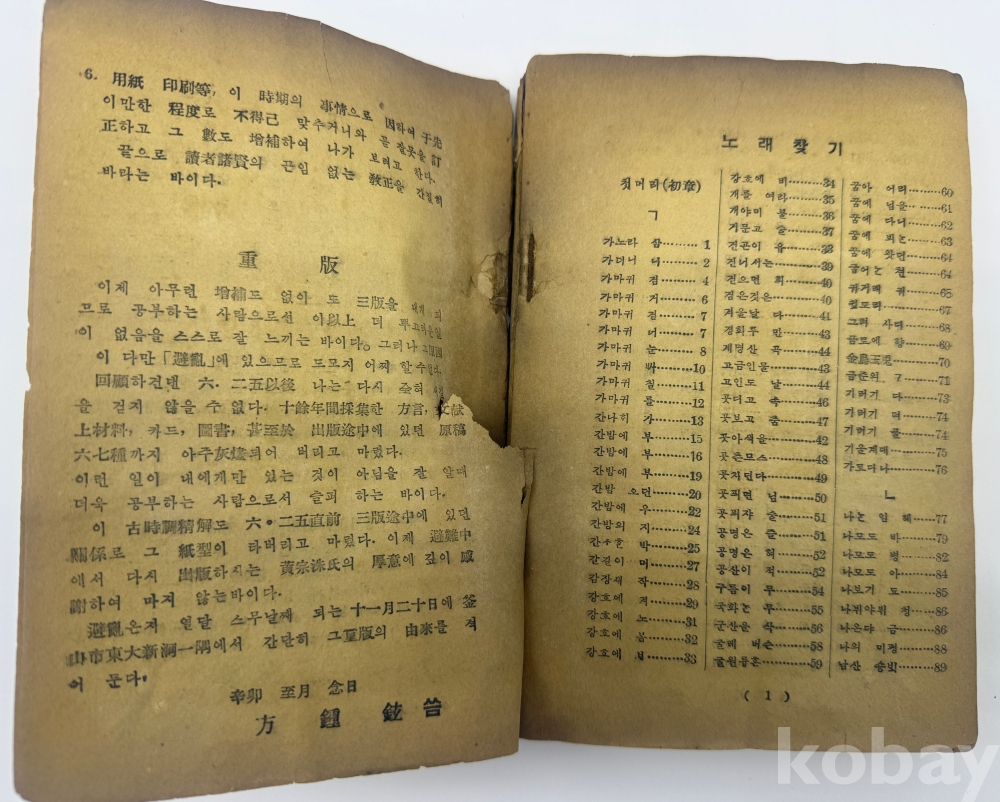 6. 用紙 印刷等, 이 時期의 事情으로 因하여 于先
이만한 程度로 不得已 맞추거니와 곧 잘못을 訂
正하고 그 數도 增補하여 나가 보려고 한다.
끝으로 讀者諸賢의 끈임 없는 敎正을 간절히
바라는 바이다.
重 版
이제 아무런 增補도 없이 또 三版을
므로 공부하는 사람으로선 이以上 더
이 없음을 스스로 잘 느끼는 바이다. 그러나
이 다만 「避亂」에 있으므로 도모지 어찌 할수
回顧하건댄 六・二五以後 나는 다시
을 걷지 않을 수 없다. 十餘年間採集한 方言, 文献
上材料, 카드, 圖書, 甚至於 出版途中에 있던 原稿
六七種까지 아주灰燼되어 버리고 마렸다.
이런 일이 내에게만 있는 것이 아님을 잘 알되
더욱 공부하는 사람으로서 슬퍼 하는 바이다.
이 古時調精解도 六・二五直前 三版途中에 있던
關係로 그 紙型이 타버리고 마렸다. 이제 避難中
에서 다시 出版하시는 黃宗洙氏의 厚意에 깊이 感
謝하여 마지 않는바이다.
避亂은지 일달 스무날째 되는 十一月二十日에 釜
山市東大新洞一隅에서 간단히 그重版의 由來를 적
어 둔다.
辛卯 至月 念日
方 鍾 鉉 씀
노 래 찾 기
첫머리(初章)
ㄱ
가노라 삼………1
가더니 너………2
가마귀 검………4
가마귀 거………6
가마귀 검………7
가마귀 너………7
가마귀 눈………8
가마귀 빠………10
가마귀 칠………11
가마귀 를………12
간나희 가………13
간밤에 부………15
간밤에 부………16
간밤에 부………19
간밤 오던………20
간밤에 우………22
간밤의 지………24
박………25
머………27
감장새 작………28
강호에 겨………29
강호에 노………31
강호에 봄………32
강호에 님………33
강호에 비………34
개를 여라………35
개야미 불………36
거문고 술………37
건곤이 유………38
건너서는………39
검으면 희………40
검은것은………40
겨울날 다………41
경회루 만………43
계명산 곡………44
고금인물………43
고인도 날………44
곳더고 속………46
곳보고 춤………47
곳아색을………42
곳은므스………48
곳지던다………49
곳픠면 님………50
곳픠쟈 술………51
공명은 글………51
공명은 허………52
공산이 적………52
구름이 무………54
국화는 무………55
군산을 삭………56
굴레 버슨………58
귤원등혼………59
꿈아 어리………60
꿈에 님을………61
꿈에 다니………62
꿈에 픠는………63
꿈에 왓던………64
굽어는 천………64
귀거래 귀………65
………67
그러 사데………68
금로에 향………69
金烏玉兎………70
금준의 ………71
기러기 다………73
기러기 떼………74
기러기 풀………74
기울계매………75
가트더나………76
ㄴ
나는 임 혜………77
나모도 바………79
나모도 병………82
나모도 아………84
나보기 도………85
나뷔야뷔 청………86
나온댜 금………86
나의 미평………88
남산 송빅………89
( 1 )
kobay